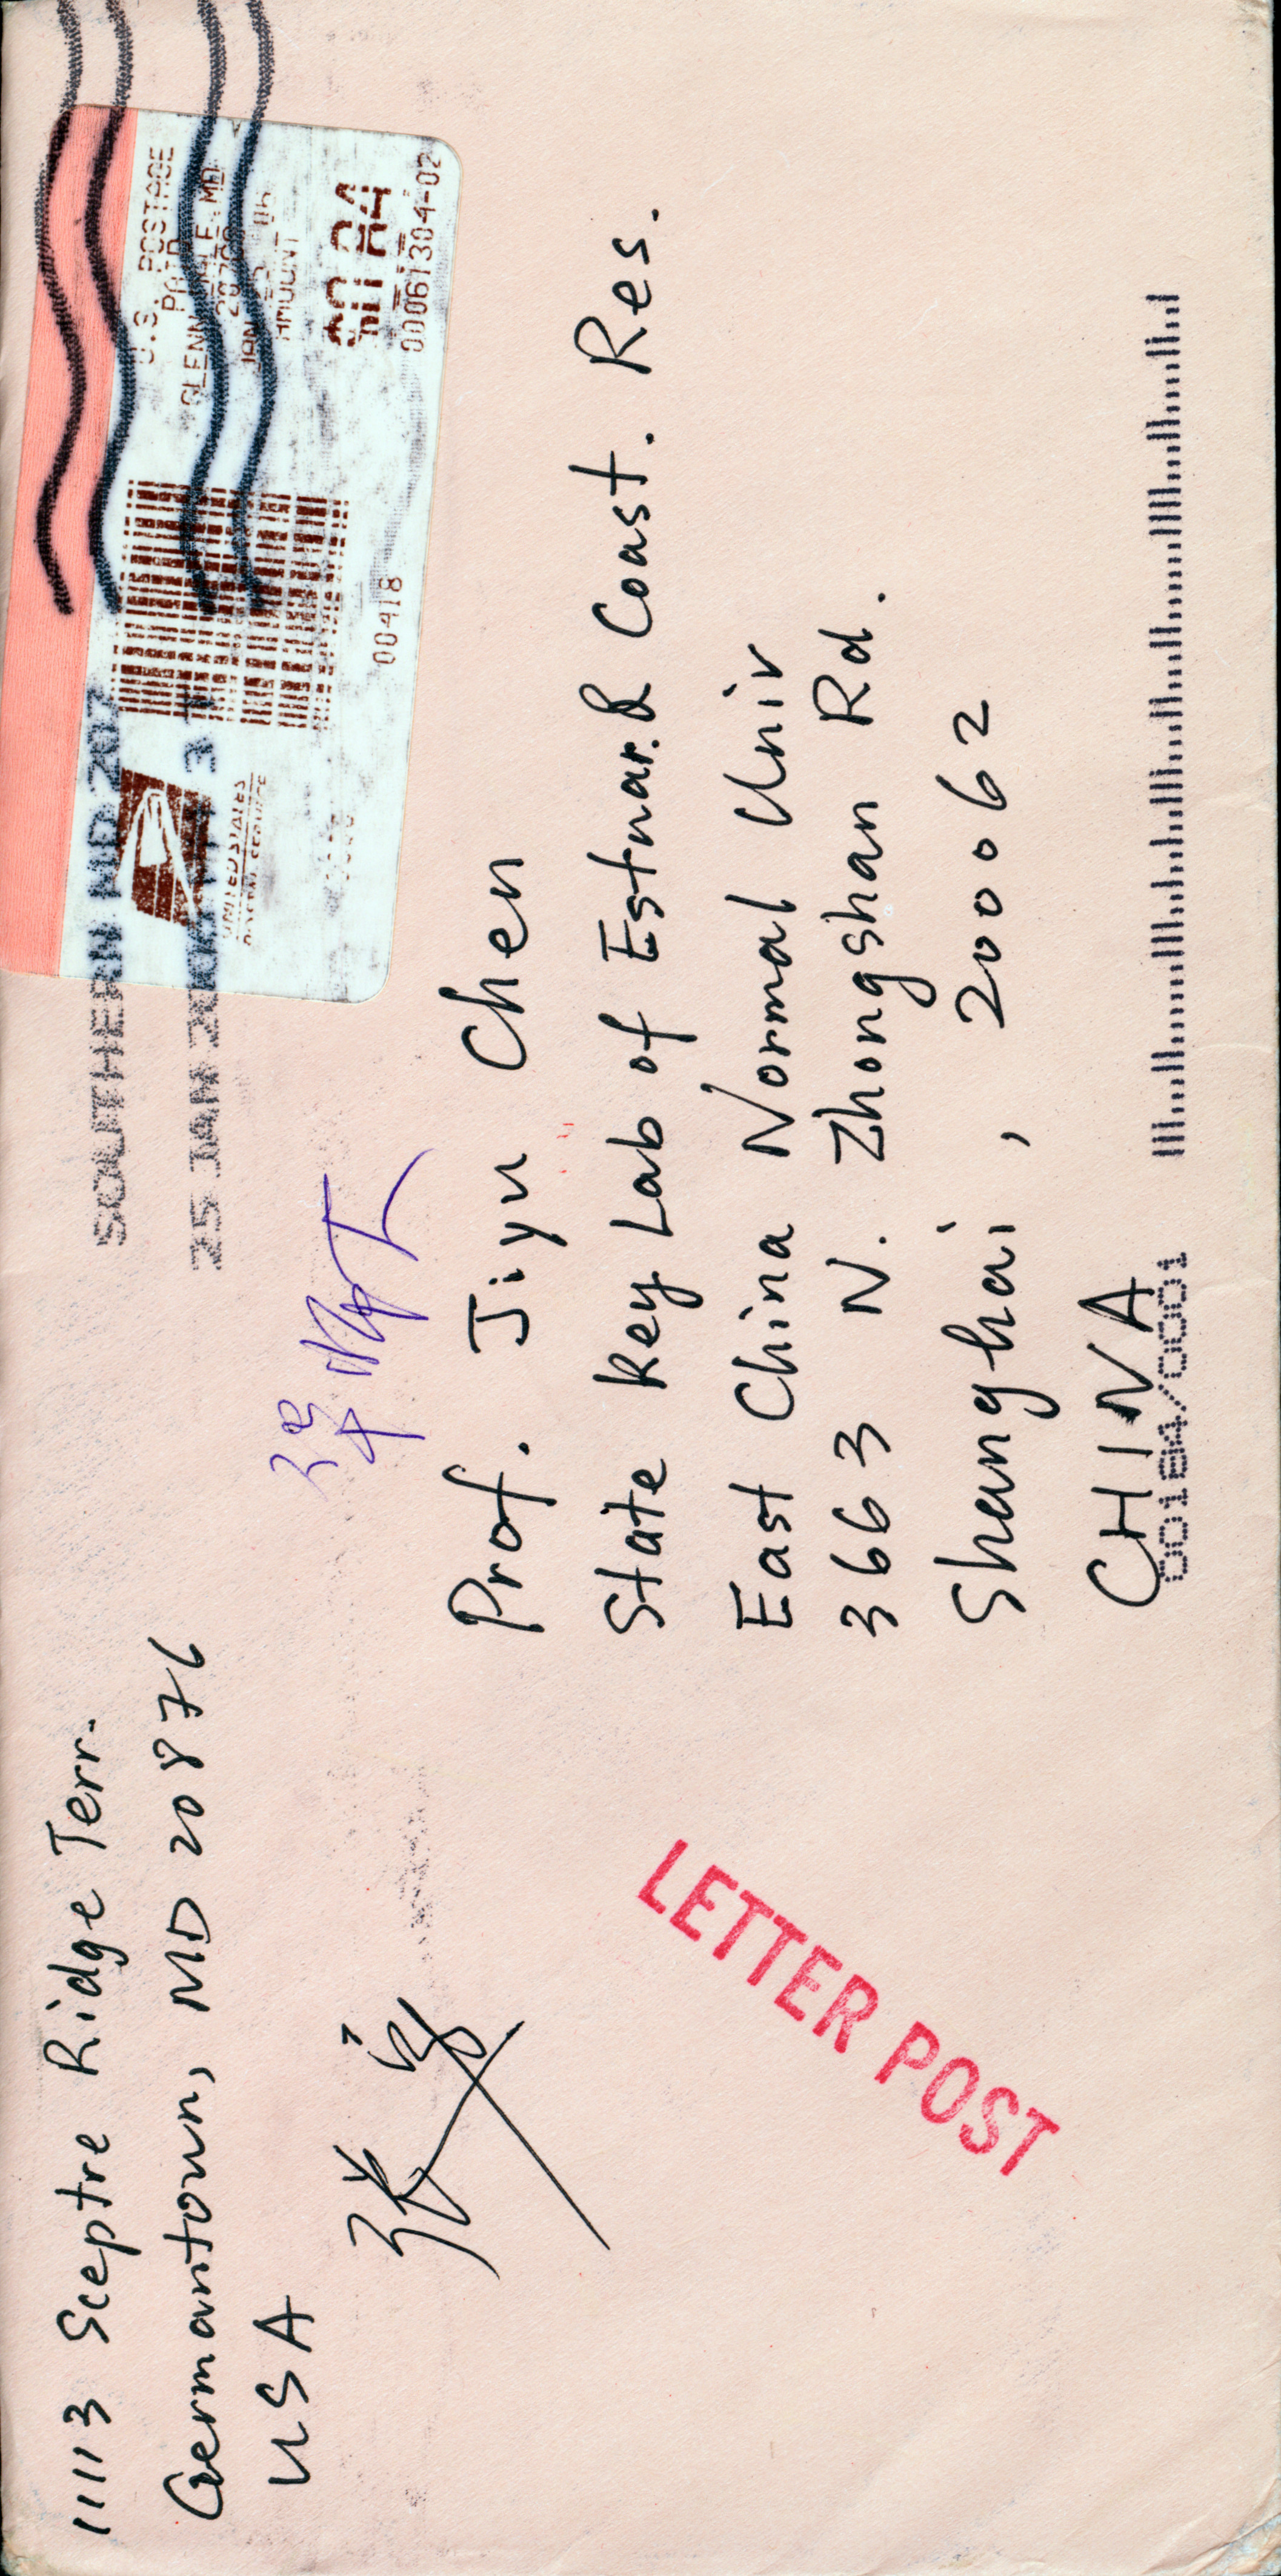 11113 Sceptre Ridge Terr.
Germantown, MD 20876
USA
张
SOUTHERN MD 207
25 JAN
U.S. POSTAGE
PAID
GLENN DALE MD
JAN 25
AMOUNT
$0.84
00061304-02
00418
UNITED STATES
POSTAL SERVICE
Prof. Jiyu Chen
State Key Lab of Estuar. & Coast. Res.
East China Normal Univ
3663 N. Zhongshan Rd.
Shanghai, 200062
CHINA
00184/0001
LETTER POST